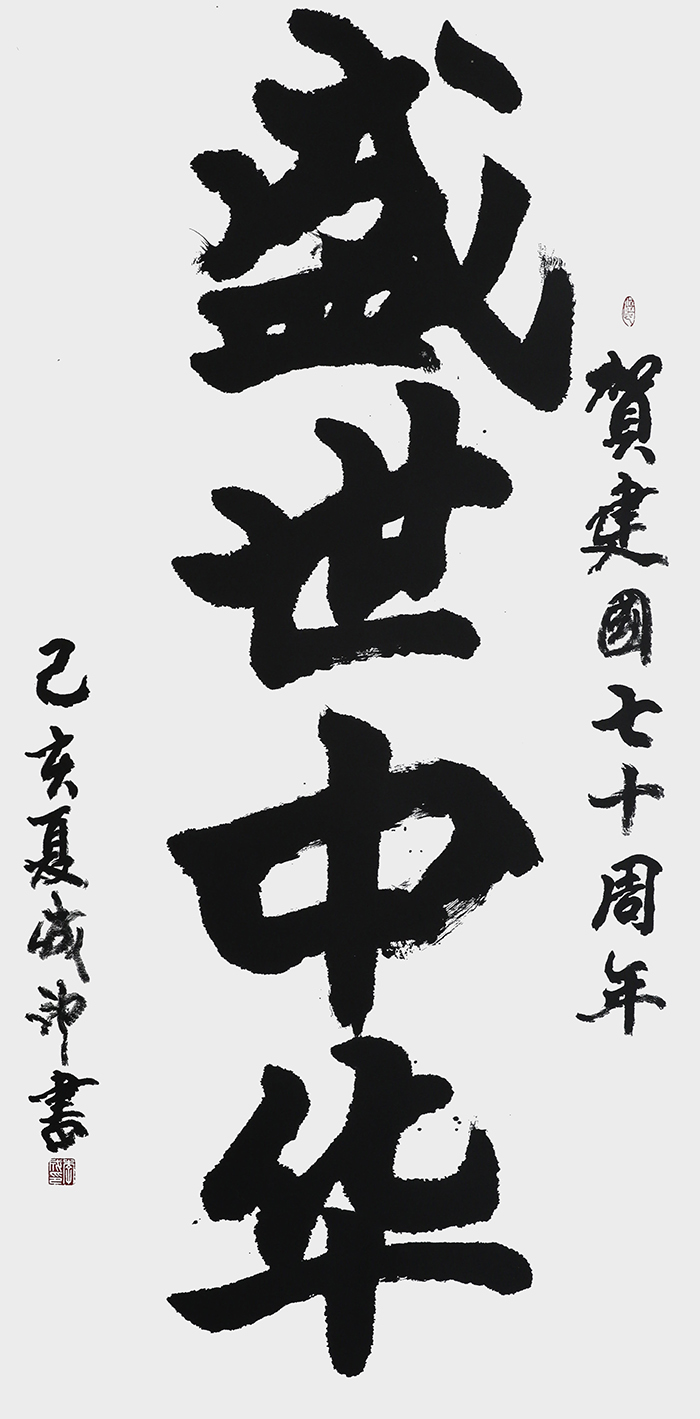 賀建國七十周年
盛世中华
己亥夏成印書